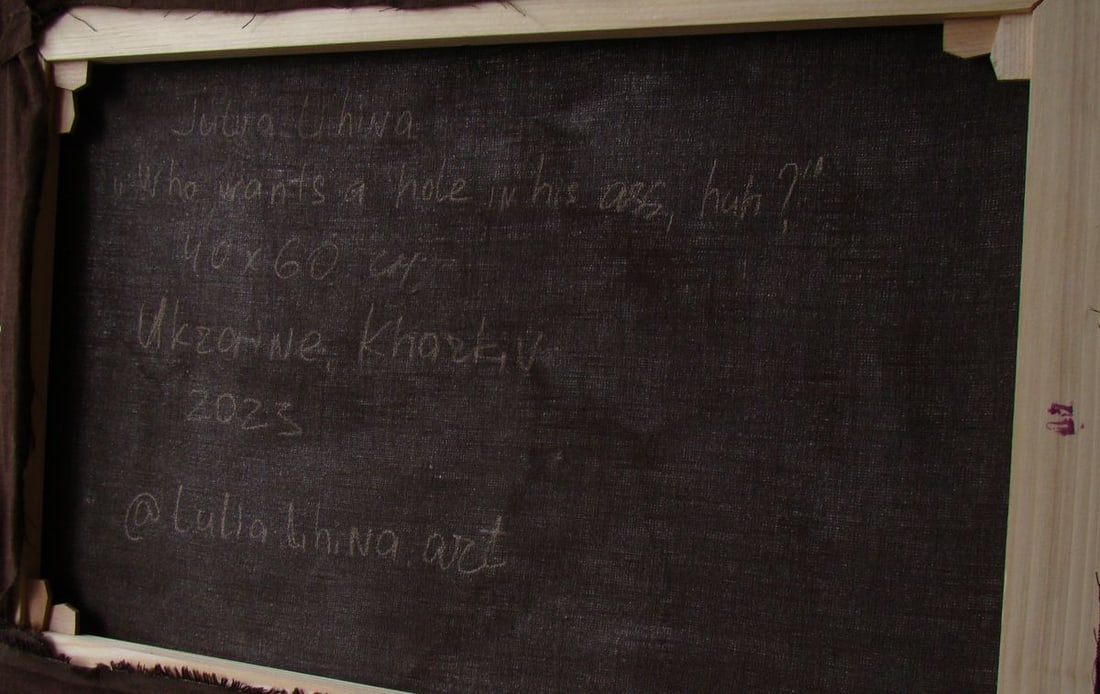 Julya Lihina
„Who wants a hole in his ass, huh?"
40x60 см
Ukraine, Kharkiv
2023
@lulia.lihina.art